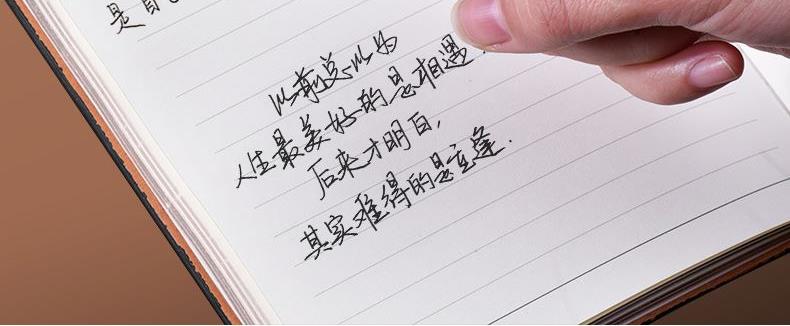 是
以前总以为
人生最美好的是相遇.
后来才明白,
其实难得的是重逢.